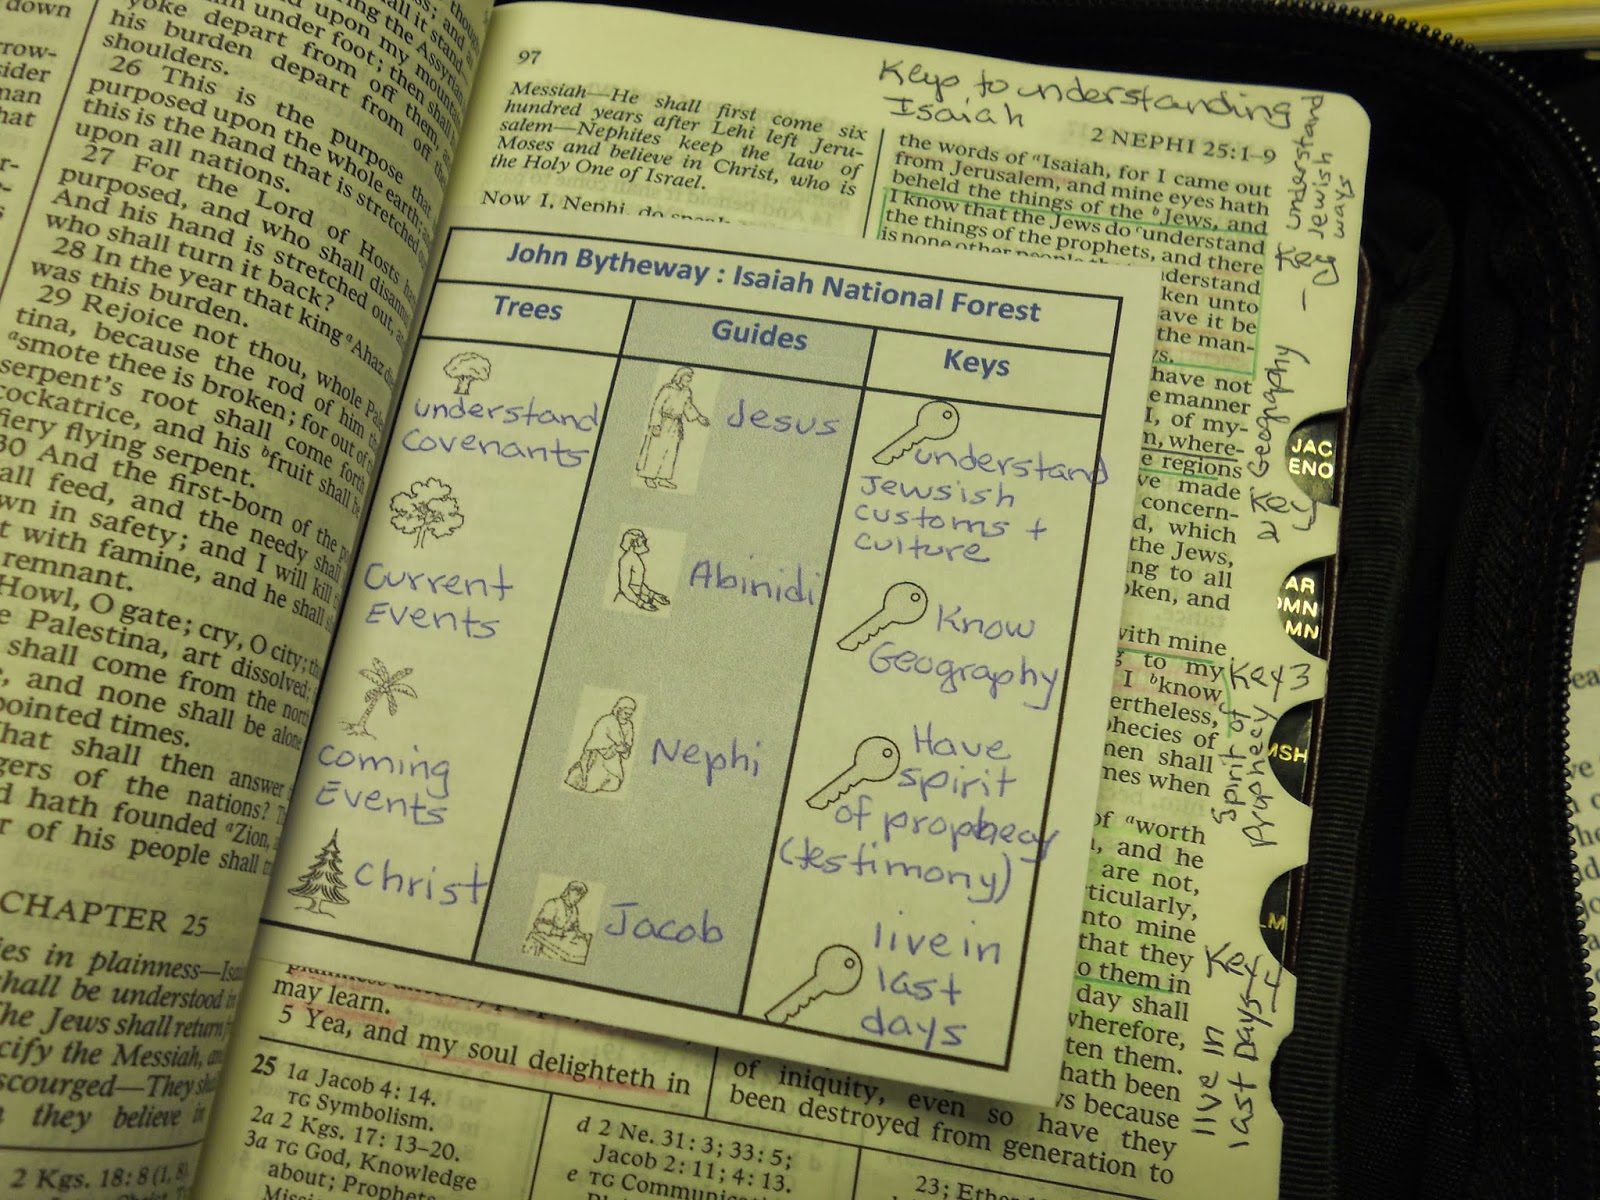 down
yoke depart from off
his burden depart from off the
shoulders.
26 This is the purpose that
purposed upon the whole earth; and
this is the hand that is stretched out
upon all nations.
27 For the Lord of Hosts
purposed, and who shall disannul
And his hand is stretched out,
who shall turn it back?
28 In the year that king ᵃAhaz
was this burden.
29 Rejoice not thou, whole
tina, because the rod of him
ᵃsmote thee is broken; for out of the
serpent's root shall come forth
cockatrice, and his ᵇfruit shall be
fiery flying serpent.
30 And the first-born of the
all feed, and the needy shall
wn in safety; and I will kill
t with famine, and he shall
remnant.
Howl, O gate; cry, O city;
Palestina, art dissolved;
shall come from the north
, and none shall be alone
pointed times.
hat shall then answer
gers of the nations?
d hath founded ᵃZion,
r of his people shall
CHAPTER 25
ies in plainness—Isa
hall be understood in
The Jews shall return
cify the Messiah,
scourged—They sha
they believe in
2 Kgs. 18:8
97
Messiah—He shall first come six
hundred years after Lehi left Jeru-
salem—Nephites keep the law of
Moses and believe in Christ, who is
the Holy One of Israel.
Now I, Nephi, do speak
Keys to understanding
Isaiah
2 NEPHI 25:1–9
the words of ᵃIsaiah, for I came out
from Jerusalem, and mine eyes hath
beheld the things of the ᵇJews, and
I know that the Jews do ᶜunderstand
the things of the prophets, and there
is none other people that understand
ken unto
ave it be
the man-
have not
e manner
I, of my-
n, where-
e regions
ve made
concern-
d, which
the Jews,
ng to all
oken, and
with mine
g to my
I ᵇknow
ertheless,
phecies of
men shall
mes when
of ᵃworth
n, and he
are not,
ticularly,
nto mine
that they
o them in
day shall
wherefore,
ten them.
hath been
ys because
of iniquity, even so have they
been destroyed from generation to
John Bytheway : Isaiah National Forest
Trees
understand
covenants
Current
Events
Coming
Events
Christ
Guides
Jesus
Abinidi
Nephi
Jacob
Keys
understand
Jewsish
customs +
culture
Know
Geography
Have
spirit
of prophecy
(testimony)
live in
last
days
Key 1 understand
Jewish
ways
Key 2 Geography
Key 3
Spirit of
Prophecy
Key 4
live in
last Days
JAC
ENO
JAR
OMN
MN
MSH
LM
may learn.
5 Yea, and my soul delighteth in
25 1a Jacob 4:14.
TG Symbolism.
2a 2 Kgs. 17:13–20.
3a TG God, Knowledge
about; Prophets
d 2 Ne. 31:3; 33:5;
Jacob 2:11; 4:13.
e TG
23; Ether